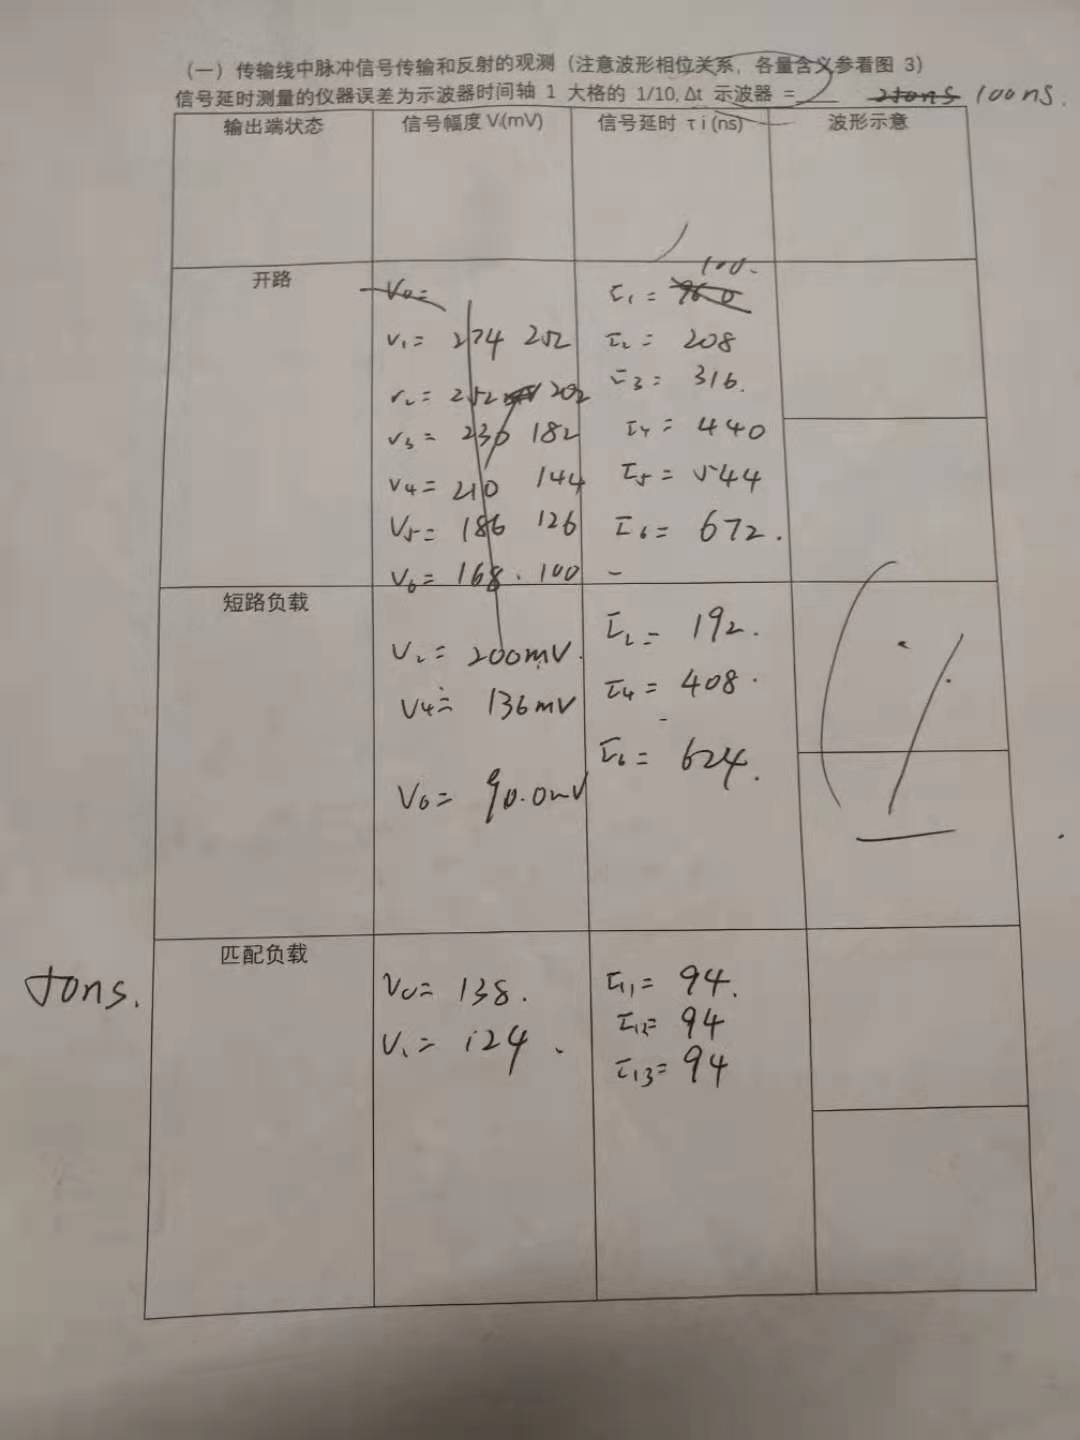 （一）传输线中脉冲信号传输和反射的观测（注意波形相位关系，各量含义参看图 3）
信号延时测量的仪器误差为示波器时间轴 1 大格的 1/10, Δt 示波器 = 100ns.
输出端状态 信号幅度 Vi(mV) 信号延时 τi(ns) 波形示意
开路
V0=
V1= 274 252
V2= 252 202
V3= 230 182
V4= 210 144
V5= 186 126
V6= 168. 100
100.
τ1= 960
τ2= 208
τ3= 316.
τ4= 440
τ5= 544
τ6= 672.
短路负载
V2= 200mV.
V4= 136mV
V6= 90.0mV
τ2= 192.
τ4= 408.
τ6= 624.
匹配负载
V0= 138.
V1= 124.
τ11= 94.
τ12= 94
τ13= 94